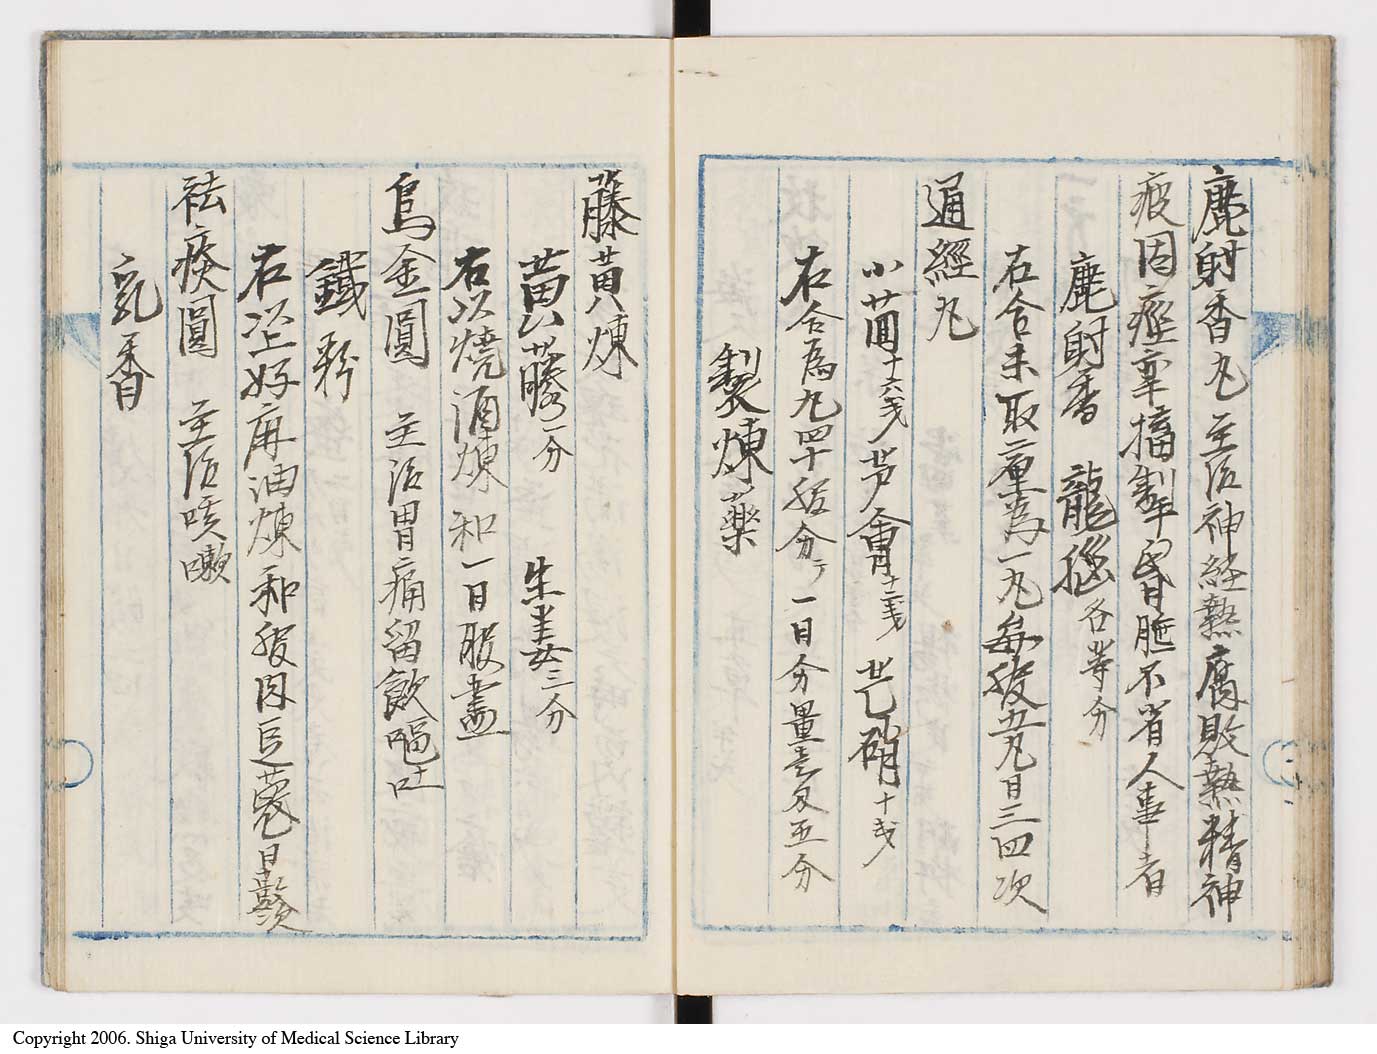 麝香丸 主治神經熱腐敗熱精神
疲困痙攣搐製平昏睡不省人事者
麝香 龍腦各等分
右合末取二重為一丸每夜五丸日三四次
通經丸
小茴十六戔 芦會十二戔 芒硝十戔
右合為丸四十發分テ一日分量壱久五分
製煉藥
藤黄煉
黄藤一分 生姜三分
右以燒酒煉和一日服盡
烏金圓 主治胃痛留飲嘔吐
鐵粉
右以上好麻油煉和服肉豆蔲日
祛痰圓 主治咳嗽
乳香
Copyright 2006. Shiga University of Medical Science Library